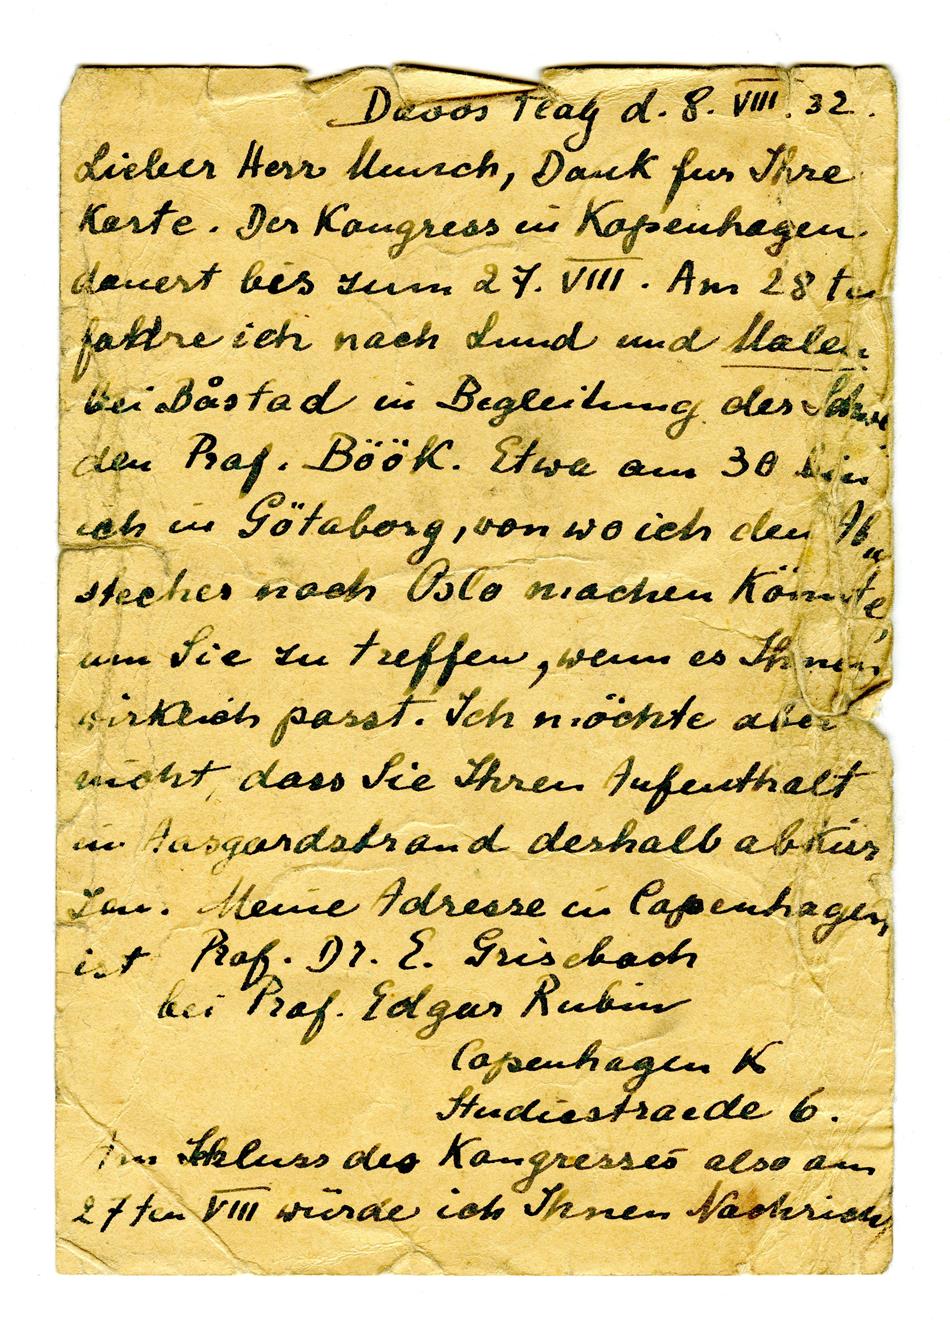 Davos Plag d. 8. VIII. 32.
Lieber Herr Munch, Dank fur Ihre
Karte. Der Kongress in Kopenhagen
dauert bis zum 27. VIII. Am 28 ten
fahre ich nach Lund und Malen
bei Båstad in Begleitung des Schwe
den Prof. Böök. Etwa am 30 bin
ich in Götaborg, von wo ich den Ab„
stecher nach Oslo machen könnte,
um Sie zu treffen, wenn es Ihnen
wirklich passt. Ich möchte aber
nicht, dass Sie Ihren Aufenthalt
in Aasgardstrand deshalb abkür
zen. Meine Adresse in Copenhagen
ist Prof. Dr. E. Grisebach
bei Prof. Edgar Rubin
Copenhagen K
Studiestraede 6.
Am Schluss des Kongresses also am
27ten VIII würde ich Ihnen Nachrich